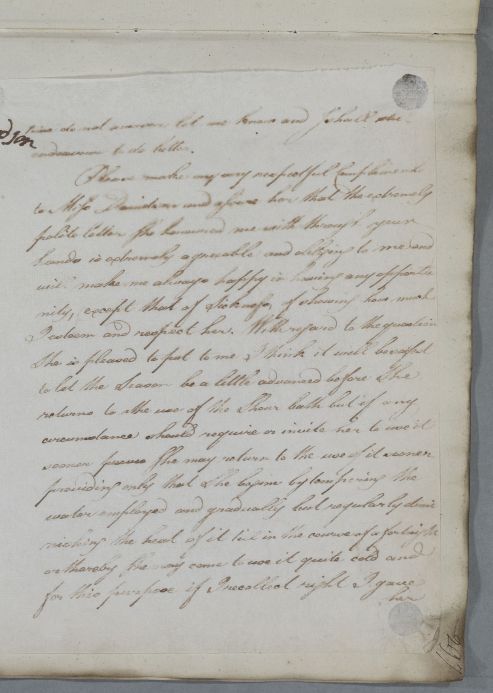 do not answer let me know and I shall
endeavour to do better.
Please make my very respectful Compliments
to Miss Davidson and assure her that the extremely
polite letter She honoured me with through your
hands is extremely agreeable and obliging to me and
will make me always happy in having any opportu
nity, except that of Sickness, of showing how much
I esteem and respect her. With regard to the question
She is pleased to put to me I think it will be safest
to let the Season be a little advanced before She
returns to the use of the Shour bath but if any
circumstance should require or invite her to use it
sooner She may return to the use of it sooner
providing only that She begin by tempering the
water employed and gradually but regularly dimi
nishing the heat of it till in the course of a fortnight
or thereby She may come to use it quite cold and
for this purpose if I recollect right I gave
her